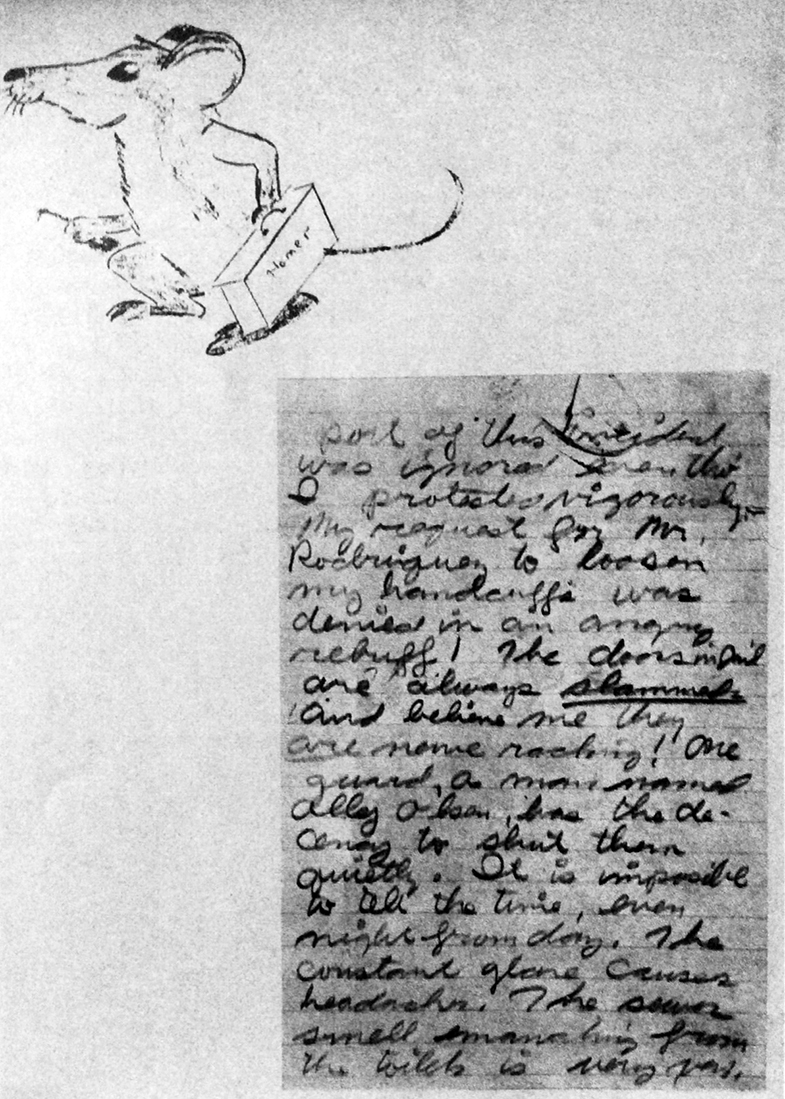 Homer
part of this incident
was ignored even tho
I protested vigorously.
My request for Mr.
Rodriguez to loosen
my handcuffs was
denied in an angry
rebuff! The doors in jail
are always slammed
And believe me they
are nerve racking! One
guard, a man named
Olsen, has the de-
cency to shut them
quietly. It is imposible
to tell the time, even
night from day. The
constant glare causes
headachs. The sewer
smell emanating from
the toilets is very